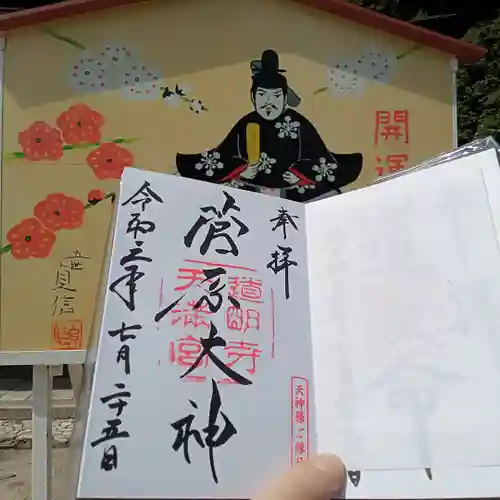 開運
五世
見信
奉拝
菅原大神
道明寺
天満宮
天神様ご縁日
令和三年七月二十五日